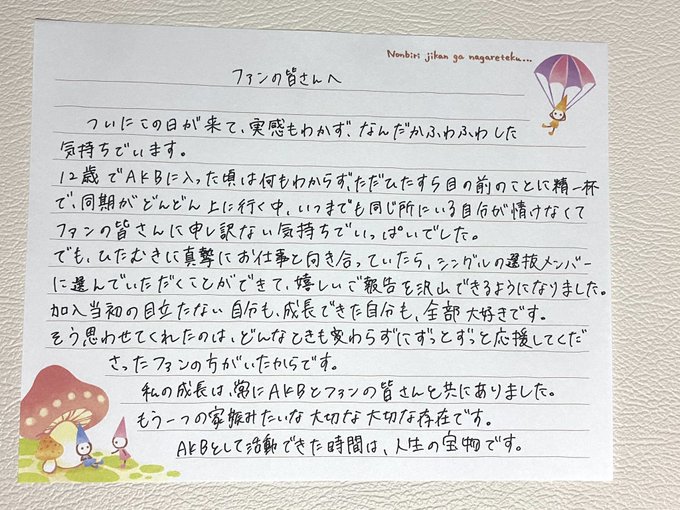 Nonbiri jikan ga nagareteku...
ファンの皆さんへ
ついにこの日が来て、実感もわかず、なんだかふわふわした
気持ちでいます。
12歳でAKBに入った頃は何もわからず、ただひたすら目の前のことに精一杯
で、同期がどんどん上に行く中、いつまでも同じ所にいる自分が情けなくて
ファンの皆さんに申し訳ない気持ちでいっぱいでした。
でも、ひたむきに真摯にお仕事と向き合っていたら、シングルの選抜メンバー
に選んでいただくことができて、嬉しいご報告を沢山できるようになりました。
加入当初の目立たない自分も、成長できた自分も、全部大好きです。
そう思わせてくれたのは、どんなときも変わらずにずっとずっと応援してくだ
さったファンの方がいたからです。
私の成長は、常にAKBとファンの皆さんと共にありました。
もう一つの家族みたいな大切な大切な存在です。
AKBとして活動できた時間は、人生の宝物です。